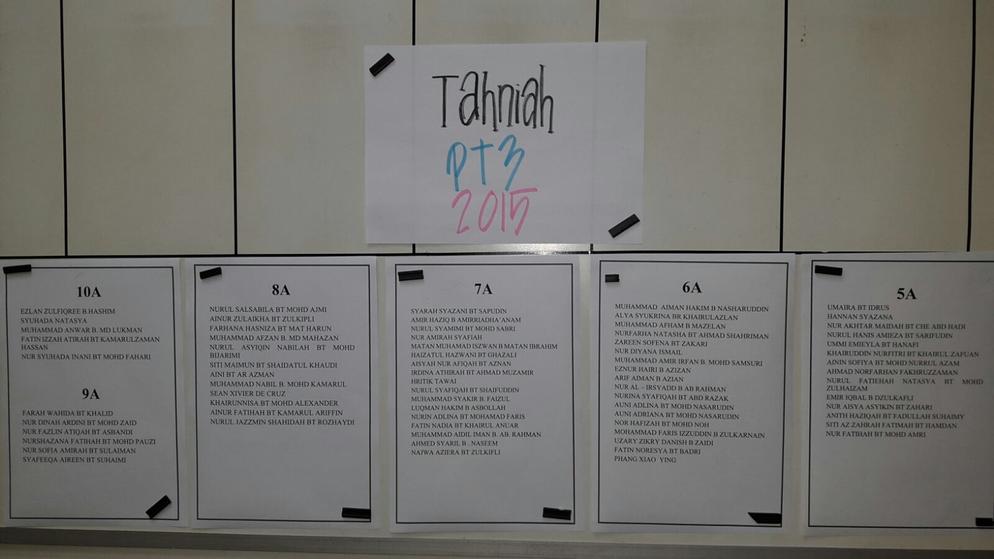 Tahniah
PT3
2015
10A
EZLAN ZULFIQREE B.HASHIM
SYUHADA NATASYA
MUHAMMAD ANWAR B. MD LUKMAN
FATIN IZZAH ATIRAH BT KAMARULZAMAN
HASSAN
NUR SYUHADA INANI BT MOHD FAHARI
9A
FARAH WAHIDA BT KHALID
NUR DINAH ARDINI BT MOHD ZAID
NUR FAZLIN ATIQAH BT ASBANDI
NURSHAZANA FATIHAH BT MOHD PAUZI
NUR SOFIA AMIRAH BT SULAIMAN
SYAFEEQA AIREEN BT SUHAIMI
8A
NURUL SALSABILA BT MOHD AJMI
AINUR ZULAIKHA BT ZULKIPLI
FARHANA HASNIZA BT MAT HARUN
MUHAMMAD AFZAN B. MD MAHAZAN
NURUL ASYIQIN NABILAH BT MOHD
BIJARIMI
SITI MAIMUN BT SHAIDATUL KHAUDI
AIN BT AR AZMAN
MUHAMMAD NABIL B. MOHD KAMARUL
SEAN XIVIER DE CRUZ
KHAIRUNNISA BT MOHD ALEXANDER
AINUR FATIHAH BT KAMARUL ARIFFIN
NURUL JAZZMIN SHAHIDAH BT ROZHAYDI
7A
SYARAH SYAZANI BT SAPUDIN
AMIR HAZIQ B AMIRRIADHA'ANAM
NURUL SYAMIMI BT MOHD SABRI
NUR AMIRAH SYAFIAH
MATAN MUHAMAD ISZWAN B MATAN IBRAHIM
HAIZATUL HAZWANI BT GHAZALI
AISYAH NUR AFIQAH BT AZNAN
IRDINA ATHIRAH BT AHMAD MUZAMIR
HRITIK TAWAI
NURUL SYAFIQAH BT SHAIFUDDIN
MUHAMMAD SYAKIR B. FAIZUL
LUQMAN HAKIM B ASBOLLAH
NURIN ADLINA BT MOHAMAD FARIS
FATIN NADIA BT KHAIRUL ANUAR
MUHAMMAD AIDIL IMAN B. AB. RAHMAN
AHMED SYARIL B . NASEEM
NAJWA AZIERA BT ZULKIFLI
6A
MUHAMMAD AIMAN HAKIM B NASHARUDDIN
ALYA SYUKRINA BR KHAIRULAZLAN
MUHAMMAD AFHAM B MAZELAN
NURFARHA NATASHA BT AHMAD SHAHRIMAN
ZAREEN SOFENA BT ZAKARI
NUR DIYANA ISMAIL
MUHAMMAD AMIR IRFAN B. MOHD SAMSURI
EZNUR HAIRI B AZIZAN
ARIF AIMAN B AZIAN
NUR AL - IRSYADD B AB RAHMAN
NURINA SYAFIQAH BT ABD RAZAK
AUNI ADLINA BT MOHD NASARUDIN
AUNI ADRIANA BT MOHD NASARUDIN
NOR HAFIZAH BT MOHD NOH
MOHAMMAD FARIS IZZUDDIN B ZULKARNAIN
UZARY ZIKRY DANISH B ZAIDI
FATIN NORESYA BT BADRI
PHANG XIAO YING
5A
UMAIRA BT IDRUS
HANNAN SYAZANA
NUR AKHTAR MAIDAH BT CHE ABD HADI
NURUL HANIS AMIEZA BT SARIFUDIN
UMMI EMIEYLA BT HANAFI
KHAIRUDDIN NURFITRI BT KHAIRUL ZAFUAN
AININ SOFIYA BT MOHD NURRUL AZAM
AHMAD NORFARHAN FAKHRUZZAMAN
NURUL FATIEHAH NATASYA BT MOHD
ZULHAIZAM
EMIR IQBAL B DZULKAFLI
NUR AISYA ASYIKIN BT ZAHARI
ANITH HAZIQAH BT FADULLAH SUHAIMY
SITI AZ ZAHRAH FATIMAH BT HAMDAN
NUR FATIHAH BT MOHD AMRI